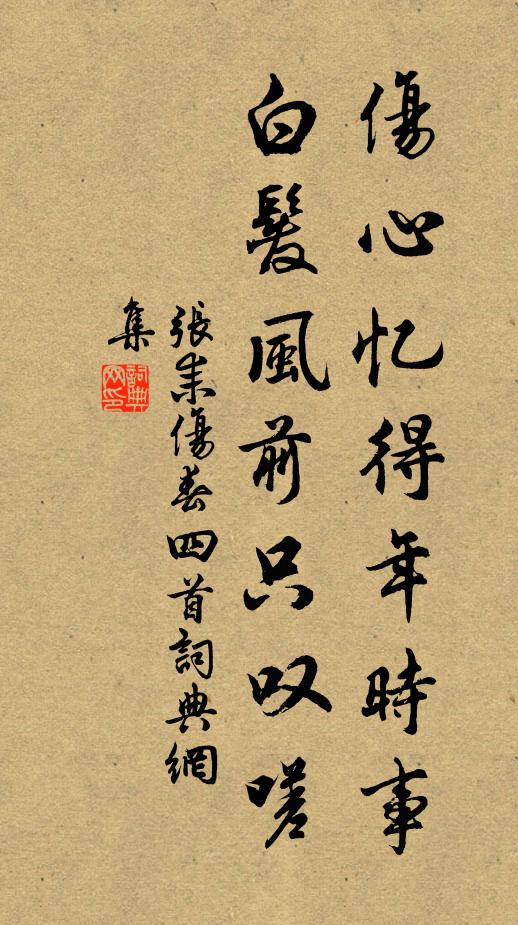 傷心忆得年時事
白髮風前只叹嗟
張耒傷春四首詞典網
集
詞典
网印